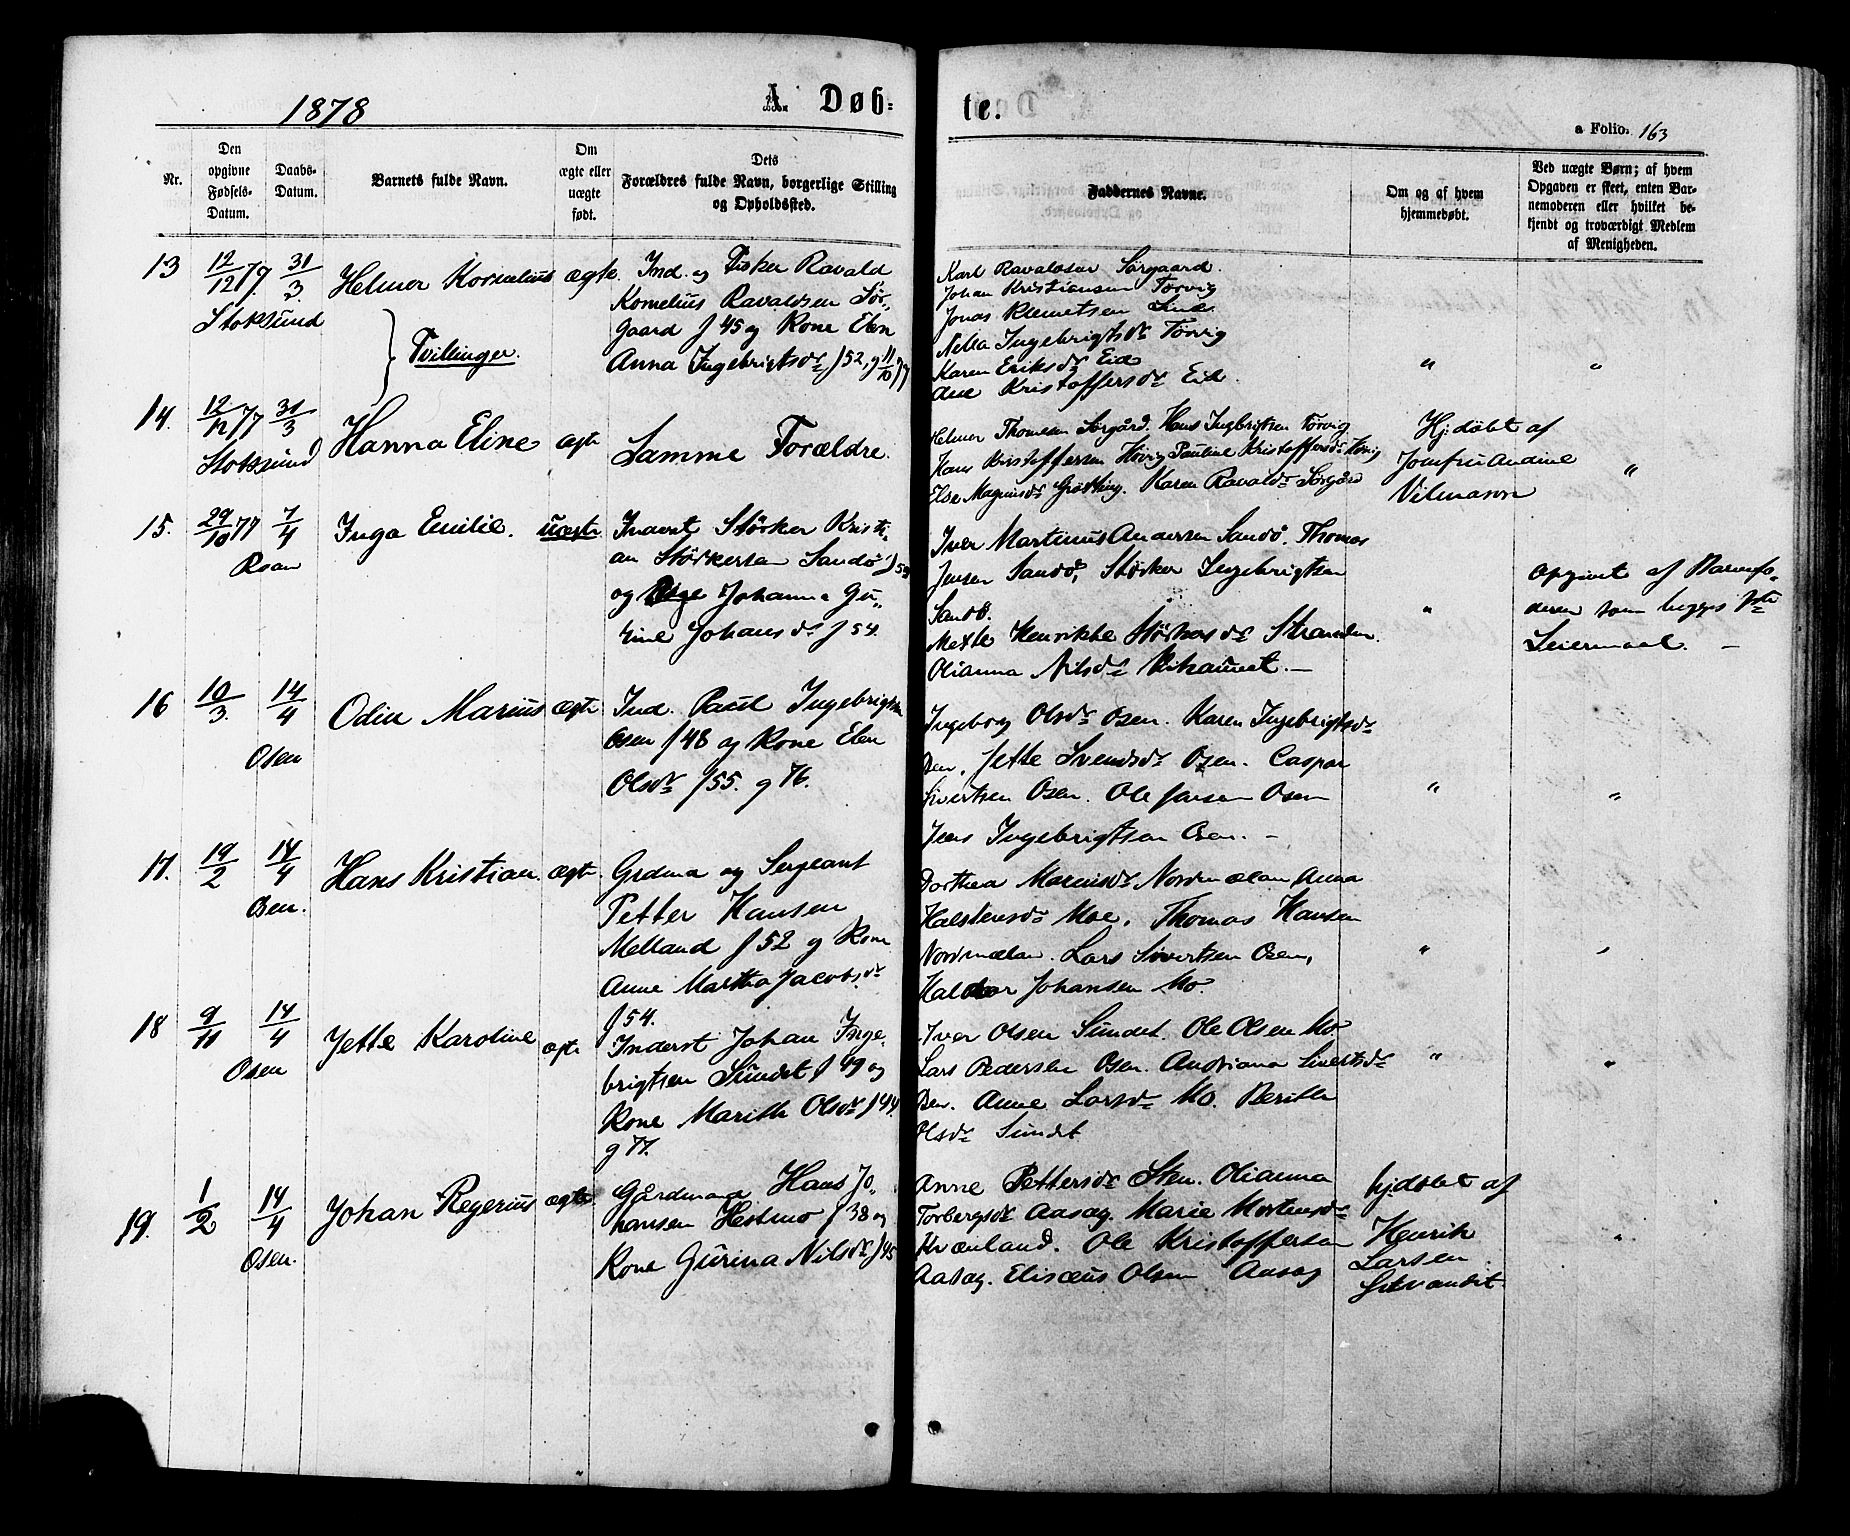 1878
A. Døb=
te.
a Folio. 163
Nr.
Den opgivne Fødsels-Datum.
Daabs-Datum.
Barnets fulde Navn.
Om ægte eller uægte født.
Dets Forældres fulde Navn, borgerlige Stilling og Opholdssted.
Faddernes Navne.
Om og af hvem hjemmedøbt.
Ved uægte Børn; af hvem Opgaven er skeet, enten Barnemoderen eller hvilket bekjendt og troværdigt Medlem af Menigheden.
13
12/12 77.
31/3
Stoksund
Helmer Kornelius
Tvillinger.
ægte.
Ind. og Fisker Ravald
Kornelius Ravaldsen Sør-
gaard f 45 og Kone Elen
Anna Ingebrigtsdr f 52, g 11/10 77
Karl Ravaldsen Sørgaard.
Johan Kristiansen Tørvig
Jonas Klemetsen
Ingebrigtsdr Tørvig
Karen Eriksdr Eid
Ane Kristoffersdr Eid.
"
"
14.
12/12 77
31/3
Stoksund
Hanna Eline
ægte
Samme Forældre.
Helmer Thomesen Sørgård. Hans Ingbrigtsen Tørvig
Hans Kristoffersen Høvig Pauline Kristoffersdr Høvig
Else Magnusdr Grøtting. Karen Ravaldsdr Sørgård
Hj.døbt af
Jomfru Andine
Vilmann
"
15.
29/10 77
7/4
Roan
Inga Emilie.
uægte
Inderst Størker Kristi-
an Størkersen Sandø f 53
og Pige Johanna Gu-
rine Johansdr f 54.
Iver Martinus Andersen Sandø. Thomas
Jensen Sandø, Størker Ingebrigtsen
Sandø.
Mette Henrikke Størkersdr Stranden.
Olianna Nilsdr Vihaunet. —
"
Opgivet af Barnefa-
deren som begges 1ste
Leiermaal. —
16
10/3.
14/4
Osen
Odin Marius
ægte
Ind. Paul Ingebrigtsen
Osen f 48 og Kone Elen
Olsdr f 55. g 76.
Ingeborg Olsdr Osen. Karen Ingebrigtsdr
Osen. Jette Svendsdr Osen. Caspar
Sivertsen Osen. Ole Jensen Osen
Jens Ingebrigtsen Osen. —
"
"
17.
19/2
14/4
Osen.
Hans Kristian.
ægte.
Grdma og Sergeant
Petter Hansen
Melland f 52 og Kone
Anne Martha Jacobsdr
f 54.
Dorthea Mariusdr Nordmelan Anna
Halstensdr Moe. Thomas Hansen
Nordmelan. Lars Sivertsen Osen,
Haldor Johansen Mo.
"
"
18
9/11
14/4
Osen
Jette Karoline
ægte
Inderst Johan Inge-
brigtsen Sundet f 49 og
Kone Marith Olsdr f 44.
g 77.
Iver Olsen Sundet. Ole Olsen Mo
Lars Pedersen Osen. Andriana Sivertsdr
Osen. Anne Larsdr Mo. Berith
Olsdr Sundet
"
"
19.
1/2
14/4
Osen.
Johan Regerius
ægte
Gårdmand Hans Jo-
hansen Hestmo f 38 og
Kone Gurina Nilsdr f 45
Anne Pettersdr Sten. Olianna
Torbergsdr Aasag. Marie Mortensdr
Kvænland. Ole Kristoffersen
Aasag. Elisæus Olsen Aasag
hj.døbt af
Henrik
Larsen
"